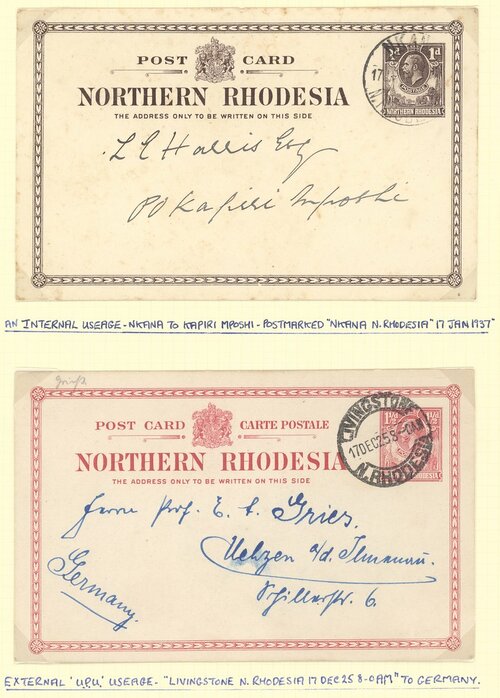 POST CARD
NORTHERN RHODESIA
THE ADDRESS ONLY TO BE WRITTEN ON THIS SIDE
1d 1d
NORTHERN RHODESIA
NKANA
17
L E Hallis Esq
PO Kapiri Mposhi
AN INTERNAL USEAGE - NKANA TO KAPIRI MPOSHI - POSTMARKED "NKANA N. RHODESIA" 17 JAN 1937"
POST CARD CARTE POSTALE
NORTHERN RHODESIA
THE ADDRESS ONLY TO BE WRITTEN ON THIS SIDE
1½d 1½d
LIVINGSTONE
17 DEC 25 8-0AM
N. RHODESIA
Herrn Prof. E. A. Gries.
Uelzen a/d. Ilmenau.
Schillerstr. 6.
Germany.
EXTERNAL 'U.P.U.' USEAGE - "LIVINGSTONE N. RHODESIA 17 DEC 25 8-0AM" TO GERMANY.